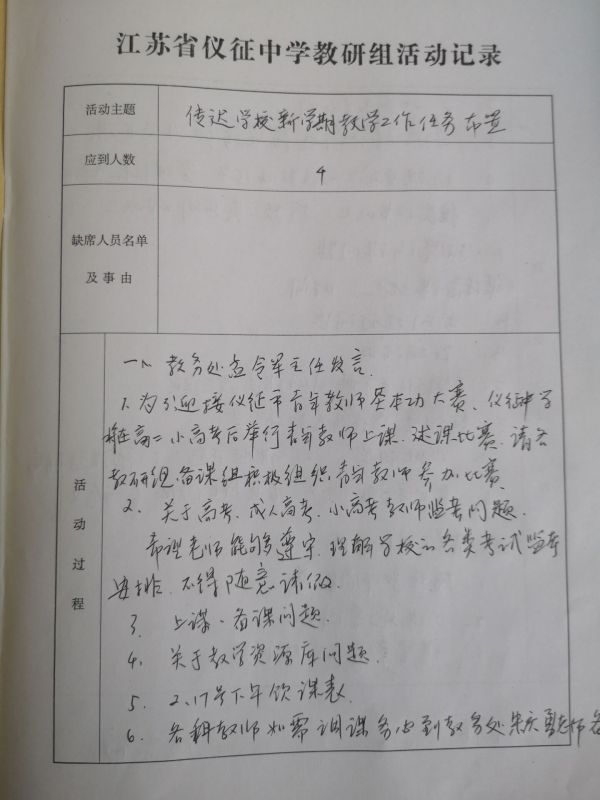 江苏省仪征中学教研组活动记录
活动主题
传达学校新学期教学工作任务布置
应到人数
4
缺席人员名单
及事由
活动过程
一、教务处孟令军主任发言.
1.为了迎接仪征市青年教师基本功大赛、仪征中学
将在高二小高考后举行青年教师上课、述课比赛.请各
教研组.备课组积极组织青年教师参加比赛.
2.关于高考.成人高考.小高考教师监考问题.
希望老师能够遵守.理解学校的各类考试监考
安排.不得随意请假.
3.上课、备课问题.
4.关于教学资源库问题.
5.2.17号下午 课表.
6.各科教师如需调课务必到教务处朱庆 老师